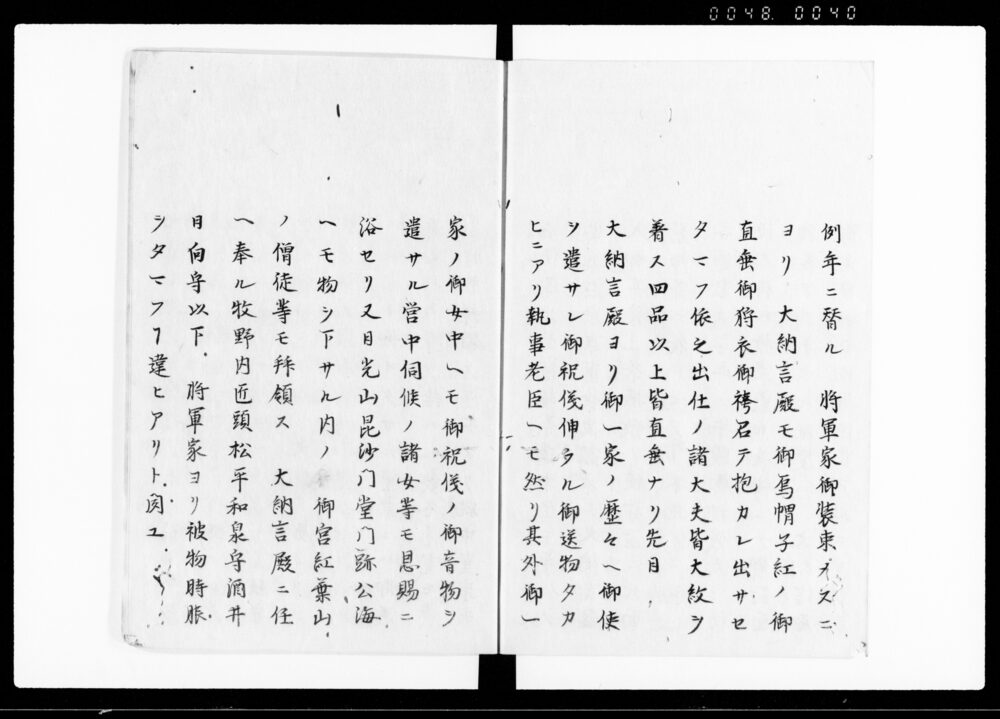 0048. 0040
例年ニ替ル　将軍家御装束メスニ
ヨリ　大納言殿モ御烏帽子紅ノ御
直垂御狩衣御袴召テ抱カレ出サセ
タマフ依之出仕ノ諸大夫皆大紋シ
著ス四品以上皆直垂ナリ先日
大納言殿ヨリ御一家ノ歴々ヘ御使
シ遣サレ御祝儀伸ラル御送物タカ
ヒニアリ執事老臣ヘモ然リ其外御一
家ノ御女中ヘモ御祝儀ノ御音物シ
遣サル営中伺候ノ諸女等モ恩賜ニ
浴セリ又日光山毘沙門堂門跡公海
ヘモ物シ下サル内ノ　御宮紅葉山
ノ僧徒等モ拝領ス　大納言殿ニ任
ヘ奉ル牧野内匠頭松平和泉守酒井
日向守以下　将軍家ヨリ被物時服
シタマフヿ違ヒアリト図エ